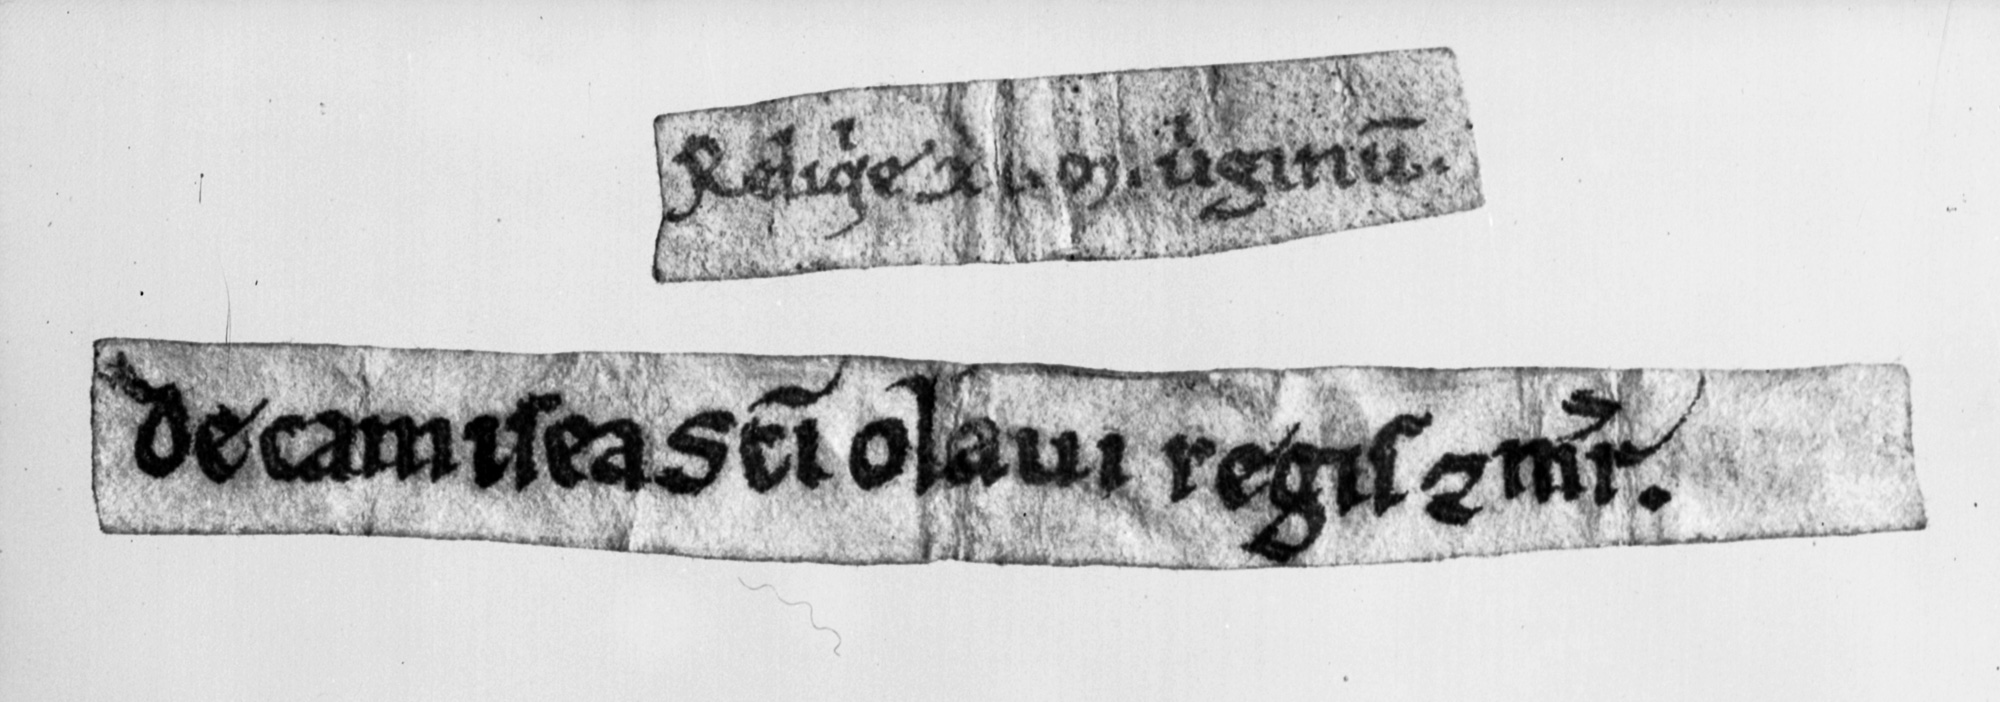 Reliq̅e xi. m̅. u̅ginu̅.
de camisea Sc̅i olaui regis ⁊ mr̅.